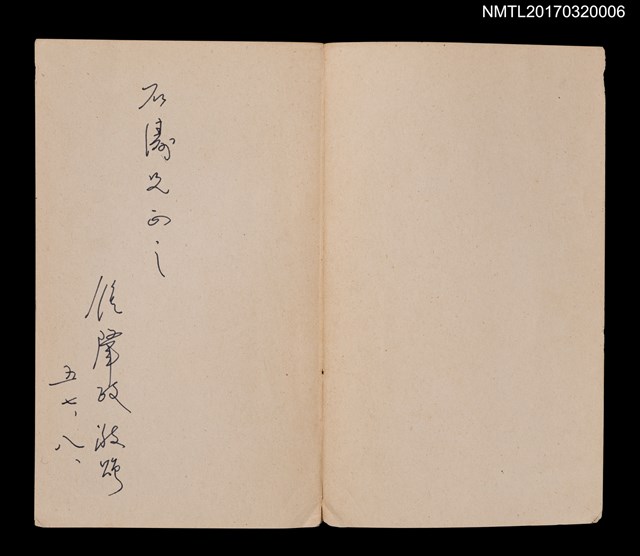 NMTL20170320006
石濤兄正之
政敬贈
五七、八、